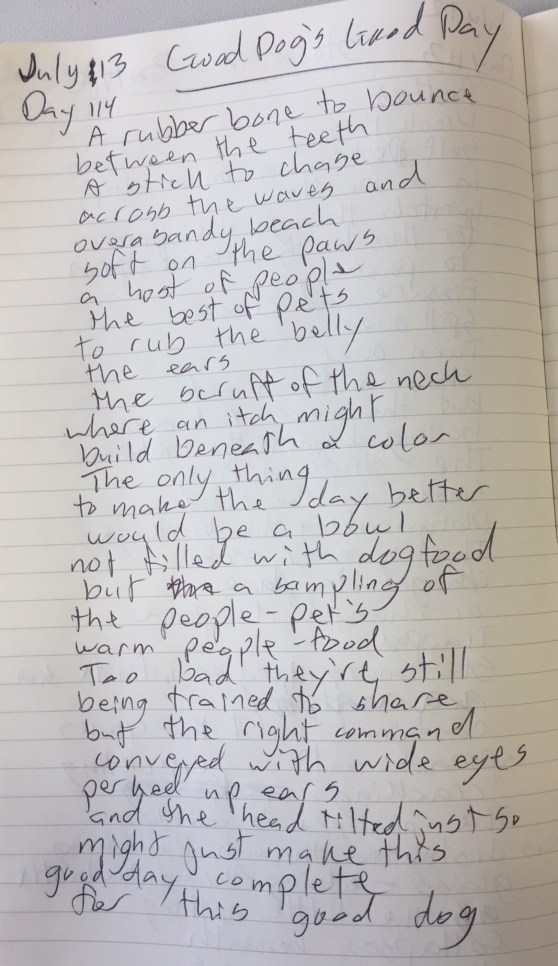 July 13 Good Dog's Good Day
Day 114
A rubber bone to bounce
between the teeth
A stick to chase
across the waves and
over a sandy beach
soft on the paws
a host of people
the best of pets
to rub the belly
the ears
the scruff of the neck
where an itch might
build beneath a color
The only thing
to make the day better
would be a bowl
not filled with dogfood
but a sampling of
the people-pet's
warm people-food
Too bad they're still
being trained to share
but the right command
conveyed with wide eyes
perked up ears
and the head tilted just so
might just make this
good day complete
for this good dog